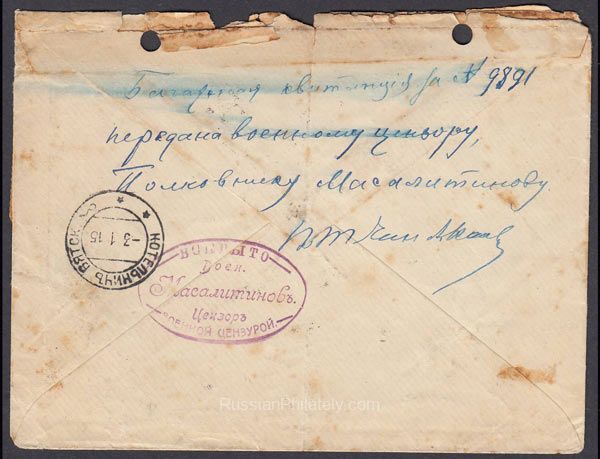 Багажная квитанція за № 9891
передана военному цензору,
Полковнику Масалитинову.
КОТЕЛЬНИЧЪ ВЯТСК.
-3 1 15
ВСКРЫТО
Воен.
Масалитиновъ.
Цензоръ
ВОЕННОЙ ЦЕНЗУРОЙ.
RussianPhilately.com